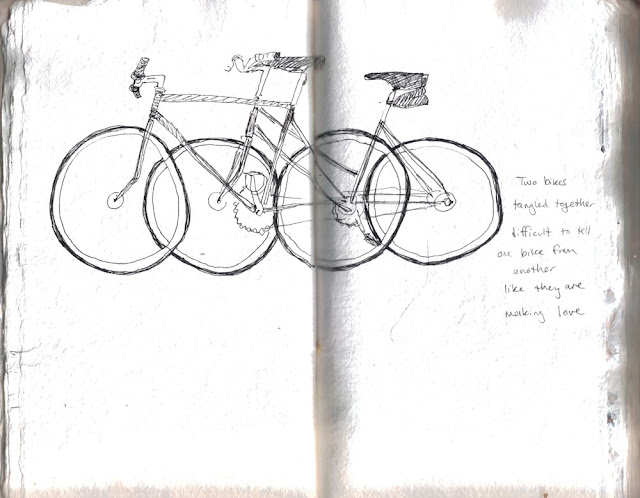 Two bikes
tangled together
difficult to tell
one bike from
another
like they are
making love